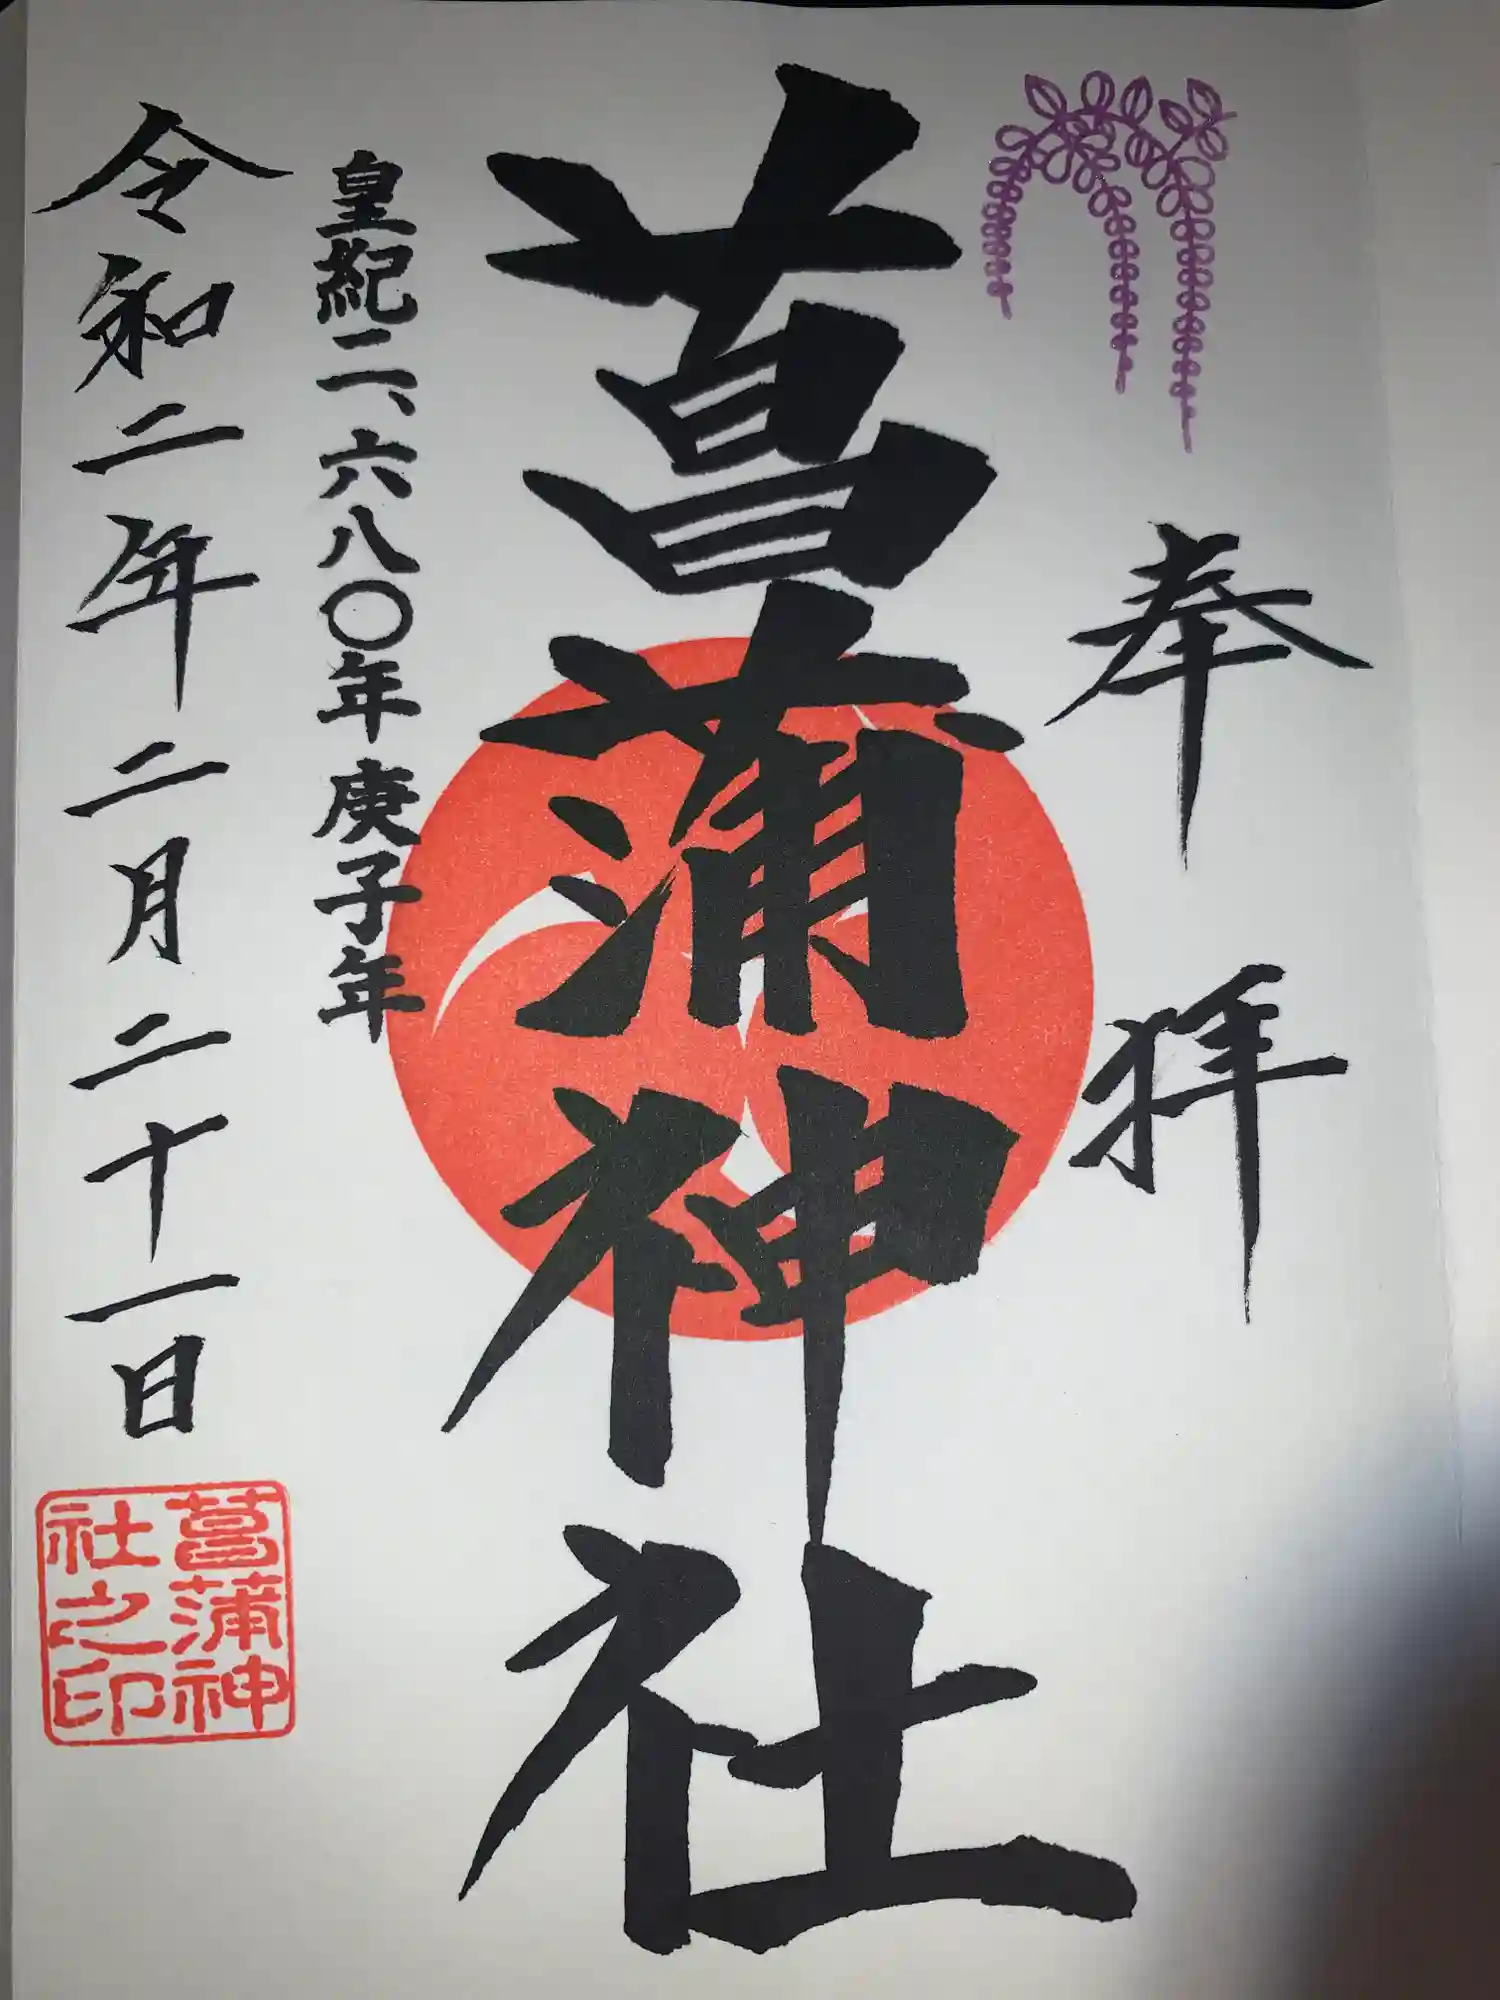 奉拝
菖蒲神社
皇紀二、六八〇年庚子年
令和二年二月二十一日
菖蒲神
社之印